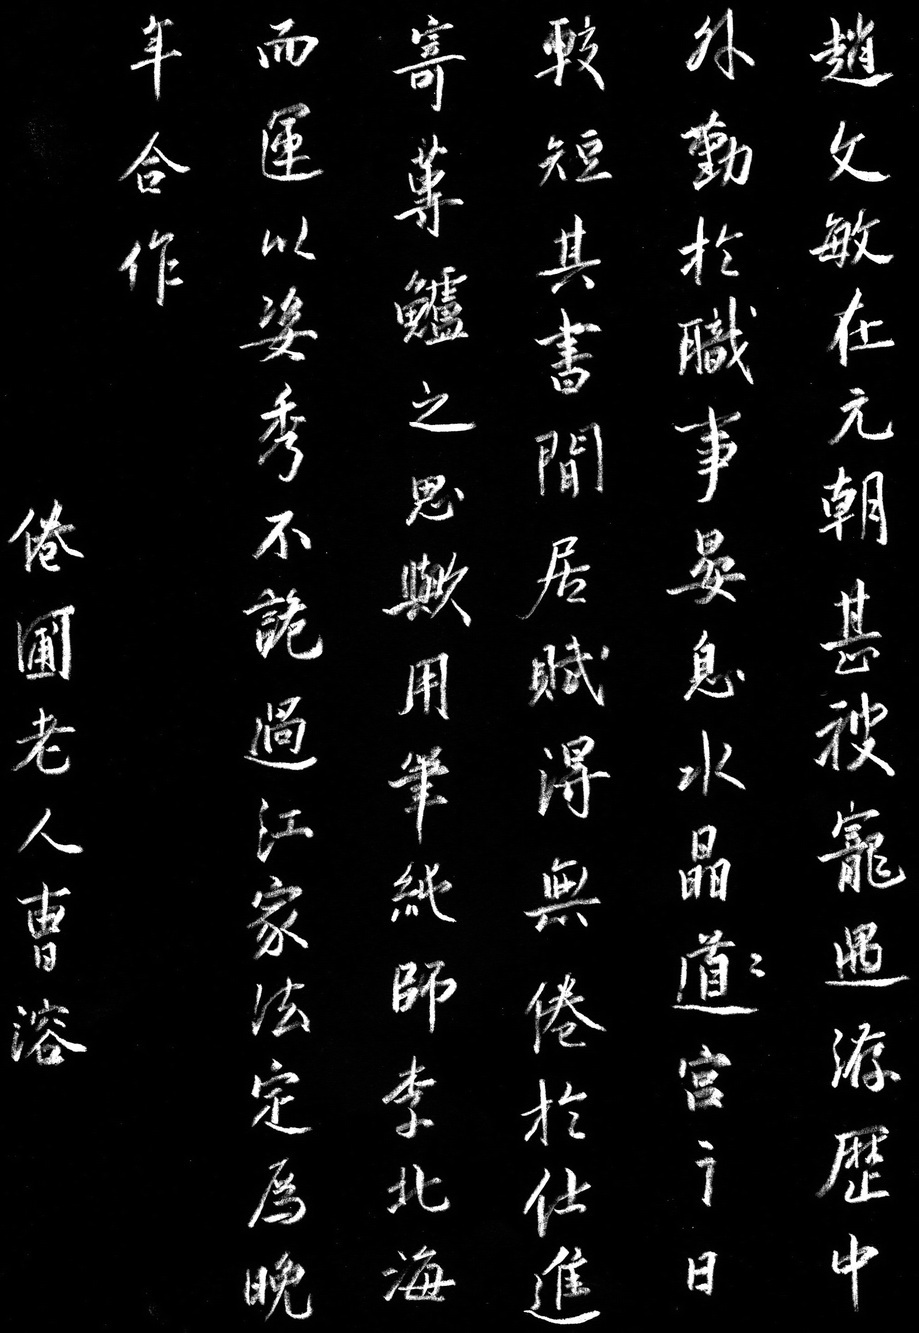 趙文敏在元朝甚被寵遇游歷中
外勤於職事晏息水晶道宮之日
較短其書閒居賦得無倦於仕進
寄蓴鱸之思歟用筆純師李北海
而運以姿秀不詭過江家法定為晚
年合作
倦圃老人曹溶